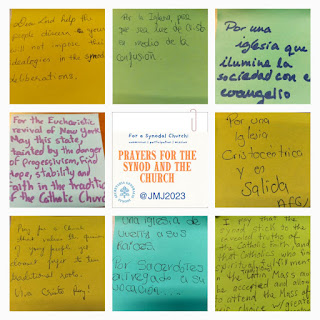 Dear Lord help the
people discern your
will not impose their
ideologies in the synod
deliberations.
Por la Iglesia, para
que sea luz de Cristo
en medio de la
confusión.
Por una
iglesia que
ilumina la
sociedad con el
evangelio
For the Eucharistic
revival of New York
May this state,
tainted by the danger
of progressivism, find
hope, stability and
faith in the tradition
of the Catholic Church
For a Synodal Church:
communion | participation | mission
PRAYERS FOR THE
SYNOD AND THE
CHURCH
@JMJ2023
Por una
Iglesia
Cristocéntrica
y en
Salida
Pray for a Church
that values the opinion
of young people yet
doesn't forget to their
traditional roots.
Viva Cristo Rey!
Una iglesia de
vuelta a sus
raíces.
Por Sacerdotes
entregados a su
vocación...
I pray that the
Synod
revealed to the
of the Catholic Faith, and
that Catholics who
spiritual
the Latin Mass may
be accepted and allowed
to attend the Mass of
choice w/ greater